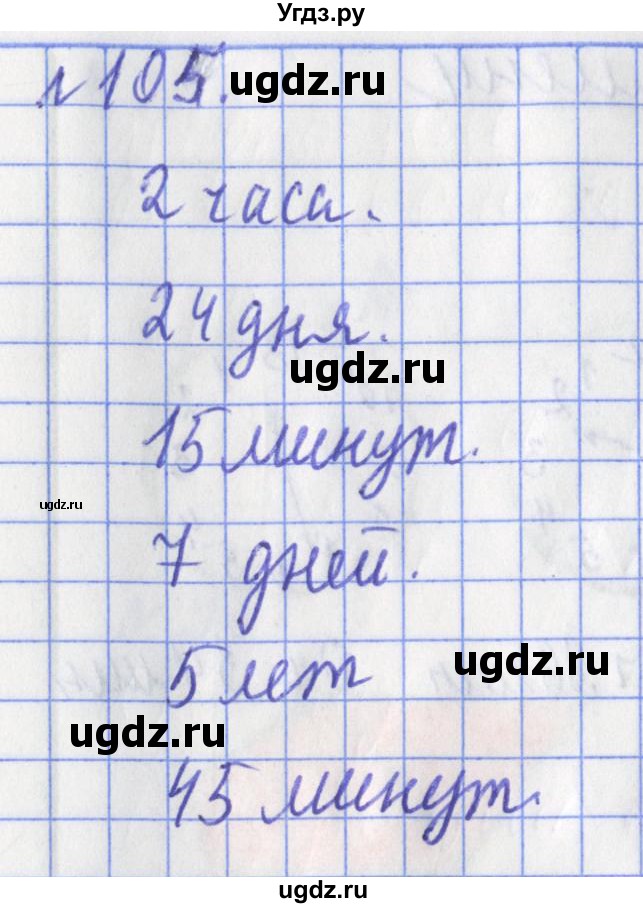 Угдз.ру
№105.
ugdz.ru
2 часа.
24 дня.
ugdz.ru
15 минут.
ugdz.ru
7 дней.
ugdz.ru
5 лет
ugdz.ru
45 минут.
ugdz.ru